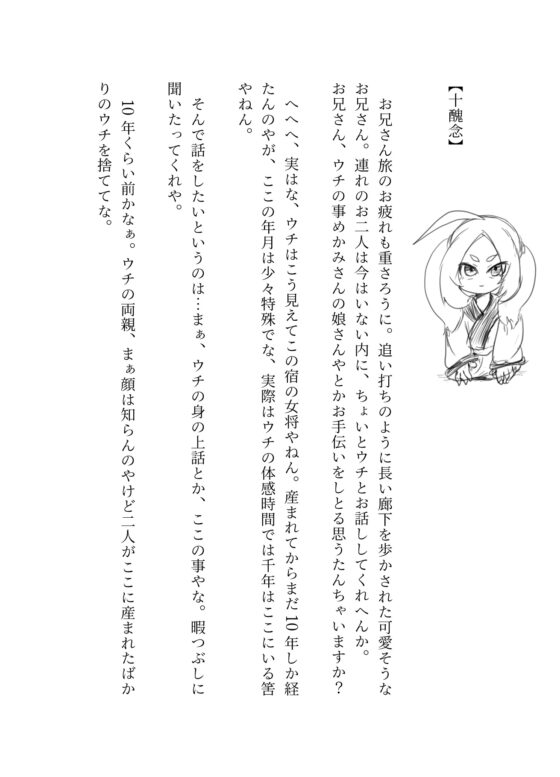 【十醜念】
お兄さん旅のお疲れも重さろうに。追い打ちのように長い廊下を歩かされた可愛そうな
お兄さん。連れのお二人は今はいない内に、ちょいとウチとお話ししてくれへんか。
お兄さん、ウチの事めかみさんの娘さんやとかお手伝いをしとる思うたんちゃいますか？
へへへ、実はな、ウチはこう見えてこの宿の女将やねん。産まれてからまだ10年しか経
たんのやが、ここの年月は少々特殊でな、実際はウチの体感時間では千年はここにいる筈
やねん。
そんで話をしたいというのは…まぁ、ウチの身の上話とか、ここの事やな。暇つぶしに
聞いたってくれや。
10年くらい前かなぁ。ウチの両親、まぁ顔は知らんのやけど二人がここに産まれたばか
りのウチを捨ててな。